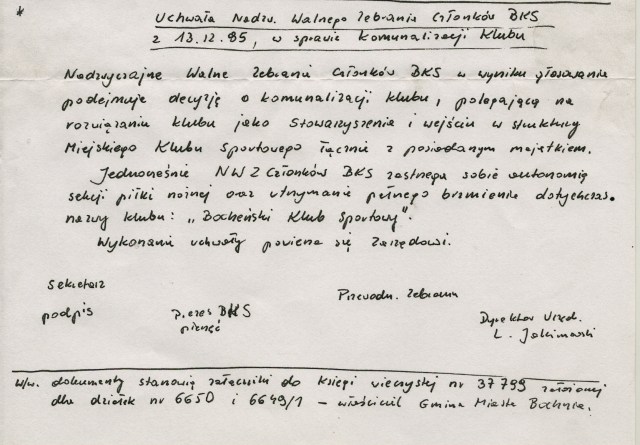 *
Uchwała Nadzw. Walnego Zebrania Członków BKS
z 13.12.95, w sprawie Komunalizacji Klubu
Nadzwyczajne Walne Zebranie Członków BKS w wyniku głosowania
podejmuje decyzję o komunalizacji klubu, polegającą na
rozwiązaniu klubu jako Stowarzyszenia i wejściu w struktury
Miejskiego Klubu Sportowego łącznie z posiadanym majątkiem.
Jednocześnie NWZ Członków BKS zastrzega sobie autonomię
sekcji piłki nożnej oraz utrzymanie pełnego brzmienia dotychczas.
nazwy klubu: „Bocheński Klub Sportowy".
Wykonanie uchwały powierza się Zarządowi.
Sekretarz
podpis
Prezes BKS
pieczęć
Przewodn. Zebrania
Dyrektor Urzęd.
L.
W/w. dokumenty stanowią załączniki do Księgi wieczystej nr 37799 założonej
dla działek nr 6650 i 6649/1 – właściciel Gmina Miasta Bochnia.